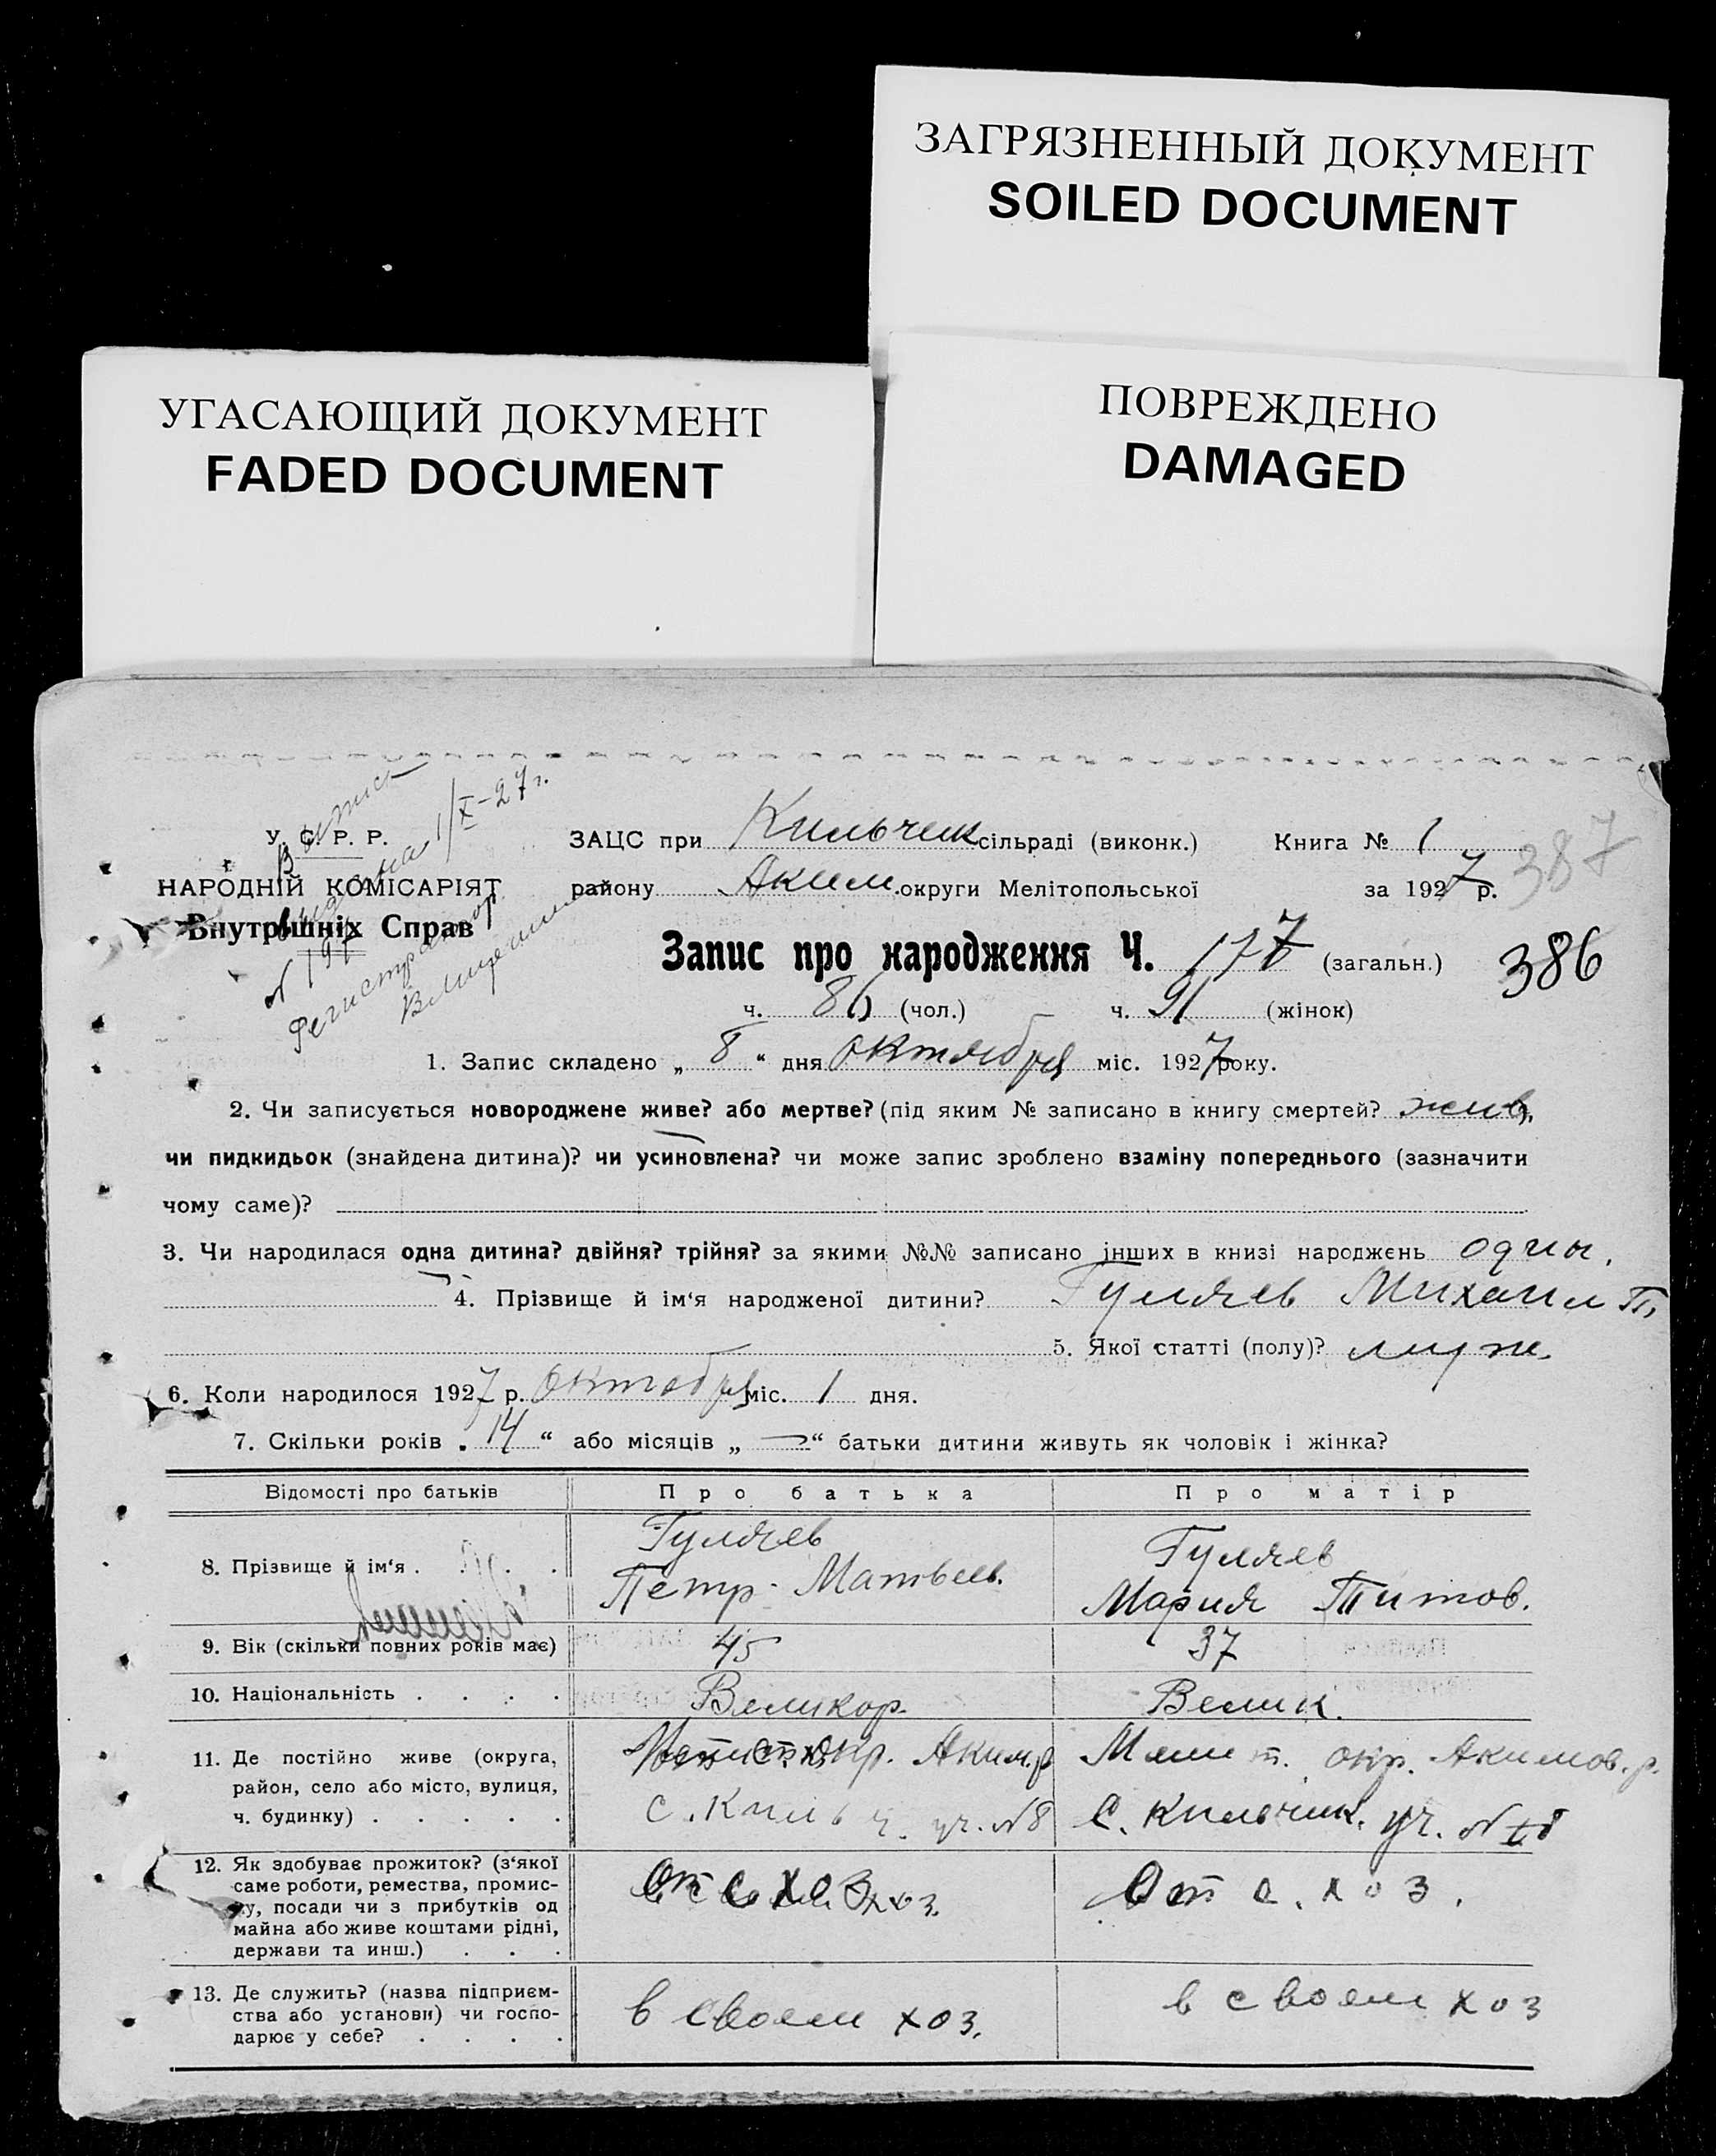 ЗАГРЯЗНЕННЫЙ ДОКУМЕНТ
SOILED DOCUMENT
УГАСАЮЩИЙ ДОКУМЕНТ
FADED DOCUMENT
ПОВРЕЖДЕНО
DAMAGED
1/X-27 г.
У. С. Р. Р.
НАРОДНІЙ КОМІСАРІЯТ
Внутрішніх Справ
ЗАЦС при Кильчик сільраді (виконк.) Книга № 1
району Аким. округи Мелітопольської за 1927 р.
387
Запис про народження Ч. 177 (загальн.)
386
ч. 86 (чол.) ч. 91 (жінок)
1. Запис складено „ 8 “ дня октября міс. 1927 року.
2. Чи записується новороджене живе? або мертве? (під яким № записано в книгу смертей? жив,
чи пидкидьок (знайдена дитина)? чи усиновлена? чи може запис зроблено взаміну попереднього (зазначити
чому саме)?
3. Чи народилася одна дитина? двійня? трійня? за якими №№ записано інших в книзі народжень одны.
4. Прізвище й ім‘я народженої дитини? Гуляев Михаил П.
5. Якої статті (полу)? муж.
6. Коли народилося 1927 р. октября міс. 1 дня.
7. Скільки років „ 14 “ або місяців „ — “ батьки дитини живуть як чоловік і жінка?
Відомості про батьків Про батька Про матір
8. Прізвище й ім‘я . . . Гуляев Петр Матвеев. Гуляев Мария Титов.
9. Вік (скільки повних років має) 45 37
10. Національність . . . . Великор. Велик.
11. Де постійно живе (округа, окр. Аким. р Мелит. окр. Акимов. р.
район, село або місто, вулиця,
ч. будинку) . . . . . с. Кильч. уч. №8 С. Кильчик. уч. № 8
12. Як здобуває прожиток? (з‘якої
саме роботи, ремества, промис-
ку, посади чи з прибутків од От с. хоз. От с. хоз.
майна або живе коштами рідні,
держави та инш.) . . .
13. Де служить? (назва підприєм-
ства або установи) чи госпо- в своем хоз. в своем хоз
дарює у себе? . . . .